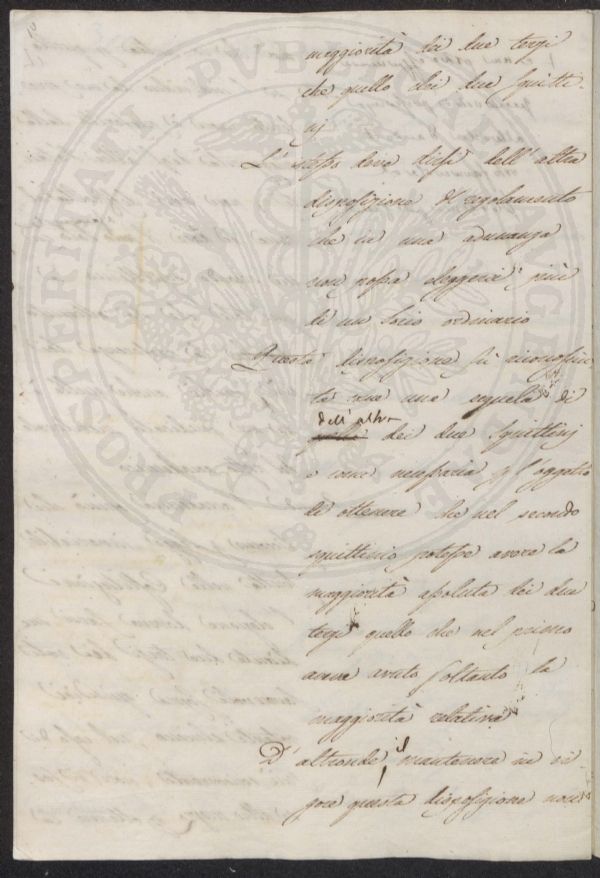 maggiorità dei due terzi
che quello dei due squitti-
nj
L'istesso deve dirsi dell'altra
disposizione del regolamento
che in una adunanza
non possa eleggersi più
di un Socio ordinario
Questa disposizione fù riconosciu-
ta una sequela di
dell'altra
dei due squittinj
e come necessaria p l'oggetto
di ottenere che nel secondo
squittinio potesse avere la
maggiorità assoluta dei due
terzi quello che nel primo
aveva avuto soltanto la
maggiorità relativa
D'altronde il mantenere in vi-
gore questa disposizione non
PROSPERITATI PUBLICAE AUGENDAE